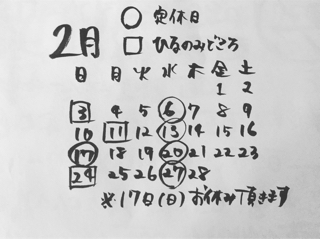 ○ 定休日
2月 □ ひるのみどころ
日 月 火 水 木 金 土
1 2
3 4 5 6 7 8 9
10 11 12 13 14 15 16
17 18 19 20 21 22 23
24 25 26 27 28
※17日(日)お休み頂きます